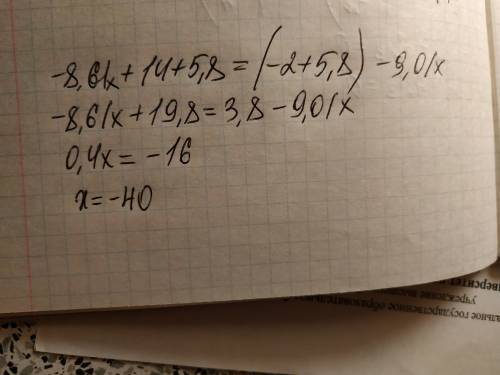 -8,61x + 14 + 5,8 = (-2 + 5,8) - 9,01x
-8,61x + 19,8 = 3,8 - 9,01x
0,4x = -16
x = -40
альное государственное образовательное
учреждение высшего